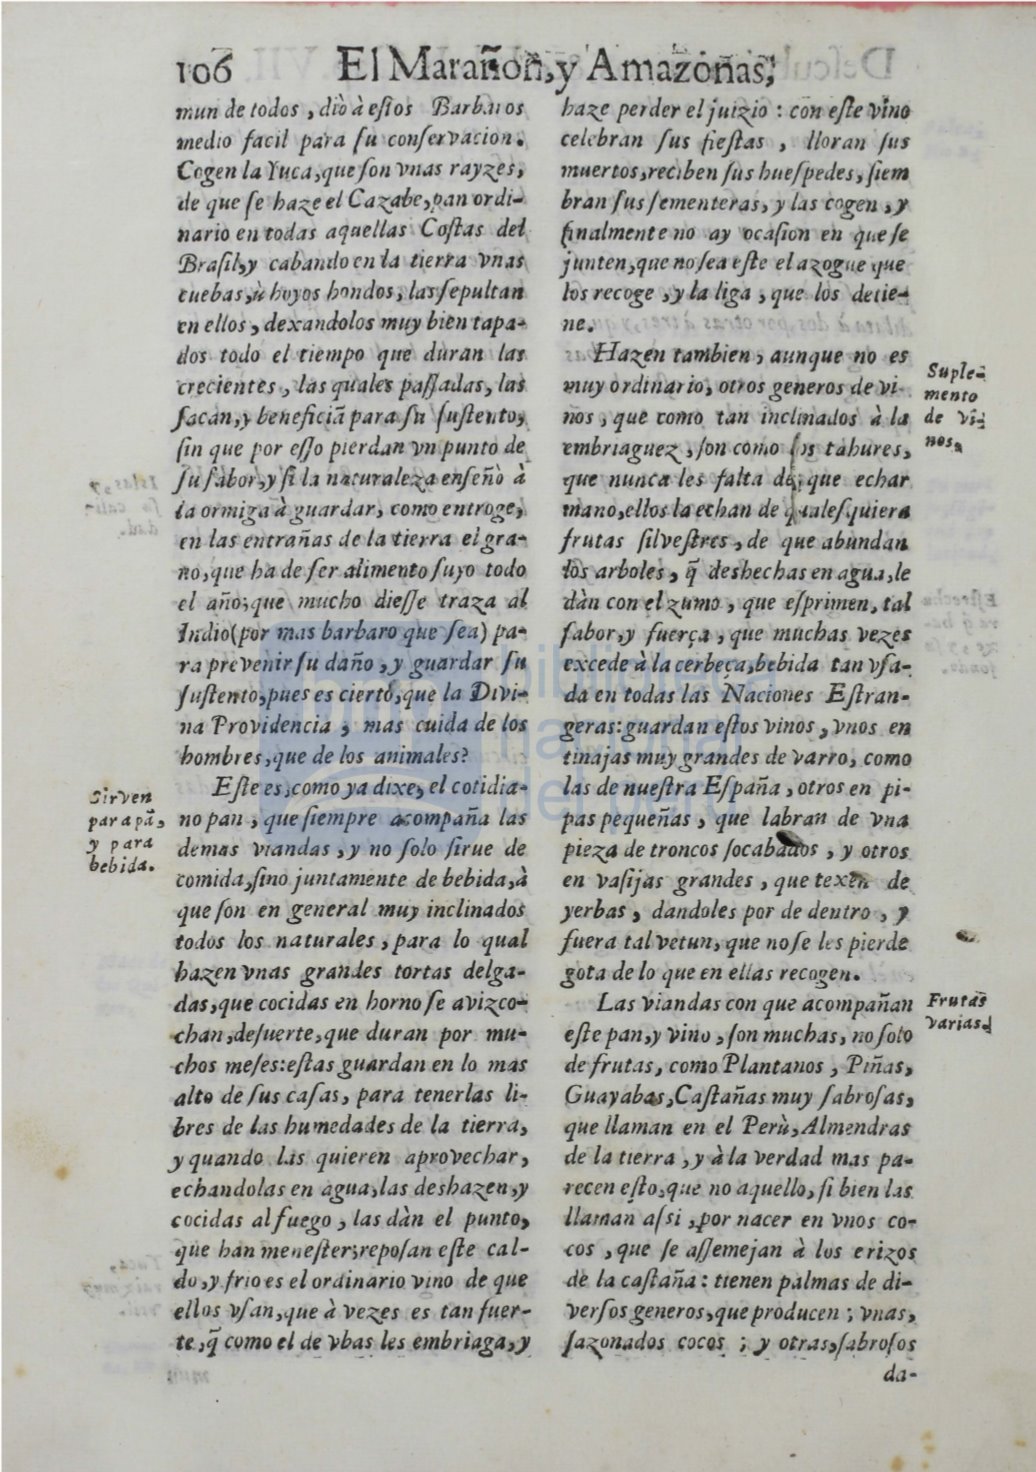 106 El Marañon, y Amazonas,
mun de todos, diò à estos Barbaros
medio facil para su conservacion.
Cogen la Yuca, que son vnas rayzes,
de que se haze el Cazabe, pan ordi-
nario en todas aquellas Costas del
Brasil, y cabando en la tierra vnas
cuebas, ù hoyos hondos, las sepultan
en ellos, dexandolos muy bien tapa-
dos todo el tiempo que duran las
crecientes, las quales passadas, las
sacan, y beneficiã para su sustento,
sin que por esso pierdan vn punto de
su sabor, y si la naturaleza enseñò à
la ormiga à guardar, como entroge,
en las entrañas de la tierra el gra-
no, que ha de ser alimento suyo todo
el año; que mucho diesse traza al
Indio (por mas barbaro que sea) pa-
ra prevenir su daño, y guardar su
sustento, pues es cierto, que la Divi-
na Providencia, mas cuida de los
hombres, que de los animales?
Sirven
para pã,
y para
bebida.
Este es, como ya dixe, el cotidia-
no pan, que siempre acompaña las
demas viandas, y no solo sirue de
comida, sino juntamente de bebida, à
que son en general muy inclinados
todos los naturales, para lo qual
hazen vnas grandes tortas delga-
das, que cocidas en horno se avizco-
chan, desuerte, que duran por mu-
chos meses: estas guardan en lo mas
alto de sus casas, para tenerlas li-
bres de las humedades de la tierra,
y quando las quieren aprovechar,
echandolas en agua, las deshazen, y
cocidas al fuego, las dàn el punto,
que han menester; reposan este cal-
do, y frio es el ordinario vino de que
ellos vsan, que à vezes es tan fuer-
te, q̃ como el de vbas les embriaga, y
haze perder el juizio: con este vino
celebran sus fiestas, lloran sus
muertos, reciben sus huespedes, siem
bran sus sementeras, y las cogen, y
finalmente no ay ocasion en que se
junten, que no sea este el azogue que
los recoge, y la liga, que los detie-
ne.
Suple-
mento
de vi-
nos.
Hazen tambien, aunque no es
muy ordinario, otros generos de vi-
nos, que como tan inclinados à la
embriaguez, son como los tahures,
que nunca les falta de que echar
mano, ellos la echan de qualesquiera
frutas silvestres, de que abundan
los arboles, q̃ deshechas en agua, le
dàn con el zumo, que esprimen, tal
sabor, y fuerça, que muchas vezes
excede à la cerbeça, bebida tan vsa-
da en todas las Naciones Estran-
geras: guardan estos vinos, vnos en
tinajas muy grandes de varro, como
las de nuestra España, otros en pi-
pas pequeñas, que labran de vna
pieza de troncos socabados, y otros
en vasijas grandes, que texen de
yerbas, dandoles por de dentro, y
fuera tal vetun, que no se les pierde
gota de lo que en ellas recogen.
Frutas
varias.
Las viandas con que acompañan
este pan, y vino, son muchas, no solo
de frutas, como Plantanos, Piñas,
Guayabas, Castañas muy sabrosas,
que llaman en el Perù, Almendras
de la tierra, y à la verdad mas pa-
recen esto, que no aquello, si bien las
llaman assi, por nacer en vnos co-
cos, que se assemejan à los erizos
de la castaña: tienen palmas de di-
versos generos, que producen; vnas,
sazonados cocos; y otras, sabrosos
da-
biblioteca
nacional
del perú